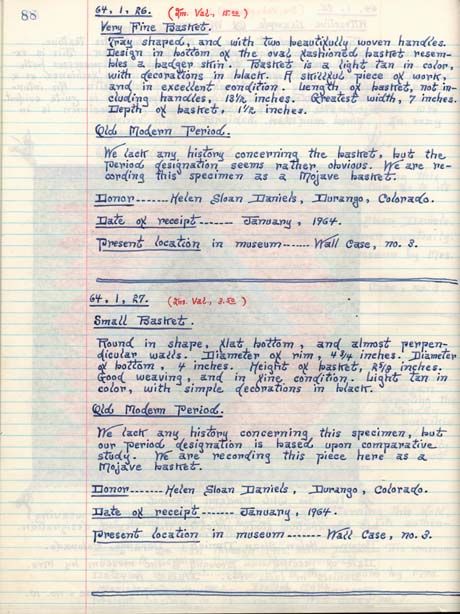 88
64, 1, 26. (Im. Val., 15.00)
Very Fine Basket.
Tray shaped, and with two beautifully woven handles.
Design in bottom of the oval fashioned basket resem-
bles a badger skin. Basket is a light tan in color,
with decorations in black. A skillful piece of work,
and in excellent condition. Length of basket, not in-
cluding handles, 13 1/2 inches. Greatest width, 7 inches.
Depth of basket, 1 1/2 inches.
Old Modern Period.
We lack any history concerning the basket, but the
period designation seems rather obvious. We are re-
cording this specimen as a Mojave basket.
Donor------Helen Sloan Daniels, Durango, Colorado.
Date of receipt------- January, 1964.
Present location in museum------Wall Case, no. 3.
64, 1, 27. (Im. Val., 3.50)
Small Basket.
Round in shape, flat bottom, and almost perpen-
dicular walls. Diameter of rim, 4 3/4 inches. Diameter
of bottom, 4 inches. Height of basket, inches.
Good weaving, and in fine condition. Light tan in
color, with simple decorations in black.
Old Modern Period.
We lack any history concerning this specimen, but
our period designation is based upon comparative
study. We are recording this piece here as a
Mojave basket.
Donor-------Helen Sloan Daniels, Durango, Colorado.
Date of receipt ------- January, 1964.
Present location in museum ------- Wall Case, no. 3.